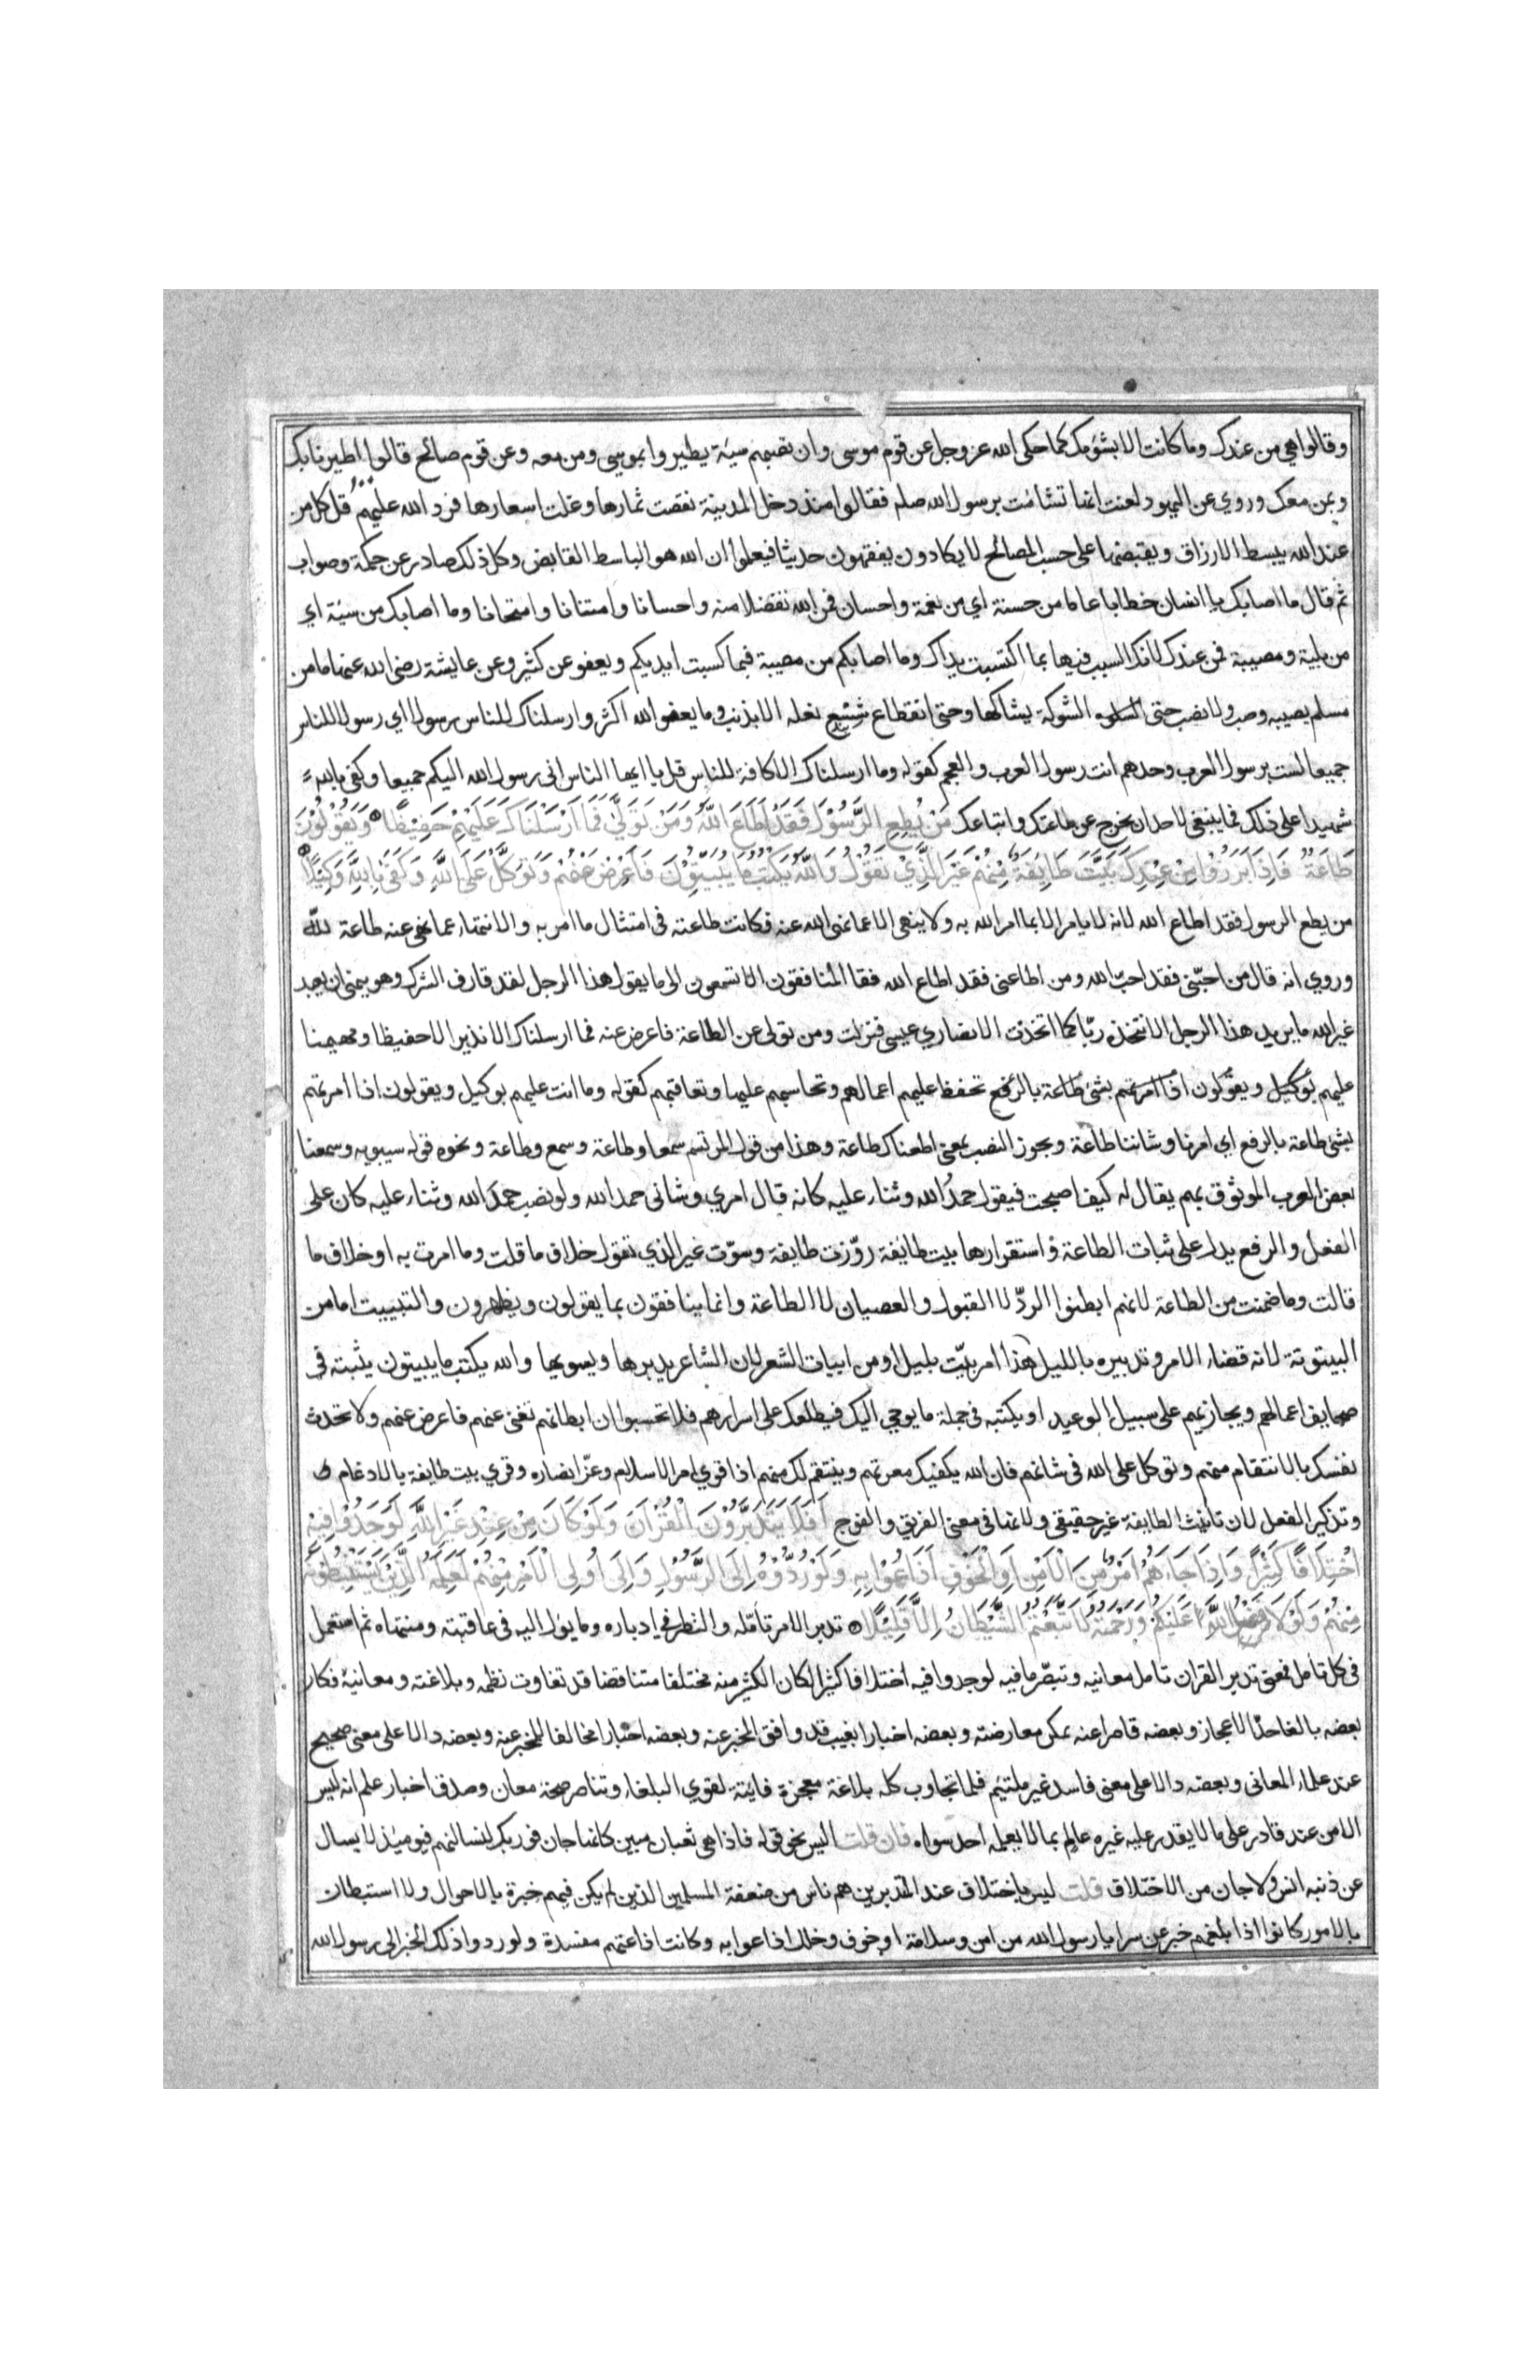 وقالوا هي من عندك وما كانت الا بشؤمك كما حكى الله عز وجل عن قوم موسى وان تصبهم سيئة يطيروا بموسى ومن معه وعن قوم صالح قالوا اطيرنا بك
وبمن معك وروي عن اليهود لعنت انها تشائمت برسول الله صلم فقالوا منذ دخل المدينة نقصت ثمارها وغلت اسعارها فرد الله عليهم قل كل من
عند الله يبسط الارزاق ويقبضها على حسب المصالح لا يكادون يفقهون حديثا فيعلموا ان الله هو الباسط القابض وكل ذلك صادر عن حكمة وصواب
ثم قال ما اصابك يا انسان خطابا عاما من حسنة اي من نعمة واحسان فمن الله تفضلا منه واحسانا وامتنانا وامتحانا وما اصابك من سيئة اي
من بلية ومصيبة فمن عندك لانك السبب فيها بما اكتسبت يداك وما اصابكم من مصيبة فبما كسبت ايديكم ويعفو عن كثير وعن عايشة رضى الله عنها ما من
مسلم يصيبه وصب ولا نصب حتى الشوكة يشاكها وحتى انقطاع شسع نعله الا بذنب وما يعفو الله اكثر وارسلناك للناس رسولا اي رسولا للناس
جميعا لست برسول العرب وحدهم انت رسول العرب والعجم كقوله وما ارسلناك الا كافة للناس قل يا ايها الناس انى رسول الله اليكم جميعا وكفى بالله
شهيدا على ذلك فما ينبغى لاحد ان يخرج عن طاعتك واتباعك مَنْ يُطِعِ الرَّسُوْلَ فَقَدْ اَطَاعَ اللّٰهَ وَمَنْ تَوَلّٰى فَمَا اَرْسَلْنَاكَ عَلَيْهِمْ حَفِيْظًا وَيَقُوْلُوْنَ
طَاعَةٌ فَاِذَا بَرَزُوْا مِنْ عِنْدِكَ بَيَّتَ طَايِفَةٌ مِنْهُمْ غَيْرَ الَّذِيْ تَقُوْلُ وَاللّٰهُ يَكْتُبُ مَا يُبَيِّتُوْنَ فَاَعْرِضْ عَنْهُمْ وَتَوَكَّلْ عَلَى اللّٰهِ وَكَفَى بِاللّٰهِ وَكِيْلًا
من يطع الرسول فقد اطاع الله لانه لا يامر الا بما امر الله به ولا ينهى الا عما نهى الله عنه فكانت طاعته فى امتثال ما امر به والانتهاء عما نهى عنه طاعة لله
وروي انه قال من احبّنى فقد احبّ الله ومن اطاعنى فقد اطاع الله فقال المنافقون الا تسمعون الى ما يقول هذا الرجل لقد قارف الشرك وهو ينهى ان يعبد
غير الله ما يريد هذا الرجل الا ان نتخذه ربّا كما اتخذت النصاري عيسى فنزلت ومن تولى عن الطاعة فاعرض عنه فما ارسلناك الا نذيرا لا حفيظا ومهيمنا
عليهم بوكيل ويقولون اذا امرتهم بشئ طاعة بالرفع تحفظ عليهم اعمالهم وتحاسبهم عليها وتعاقبهم كقوله وما انت عليهم بوكيل ويقولون اذا امرتهم
بشئ طاعة بالرفع اي امرنا وشاننا طاعة ويجوز النصب بمعنى اطعناك طاعة وهذا من قول المرتسم سمعا وطاعة وسمع وطاعة ونحوه قول سيبويه وسمعنا
بعض العرب الموثوق بهم يقال له كيف اصبحت فيقول حمدُ الله وثناء عليه كانه قال امري وشانى حمد الله ولو نصب حمدَ الله وثناء عليه كان على
الفعل والرفع يدل على ثبات الطاعة واستقرارها بيت طايفة زوّرت طايفة وسوّت غير الذي تقول خلاف ما قلت وما امرت به او خلاف ما
قالت وما ضمنت من الطاعة لانهم ابطنوا الردّ لا القبول والعصيان لا الطاعة وانما ينافقون بما يقولون ويظهرون والتبييت اما من
البيتوتة لانه قضاء الامر وتدبيره بالليل هذا امر بيّت بليل او من ابيات الشعر لان الشاعر يدبرها ويسويها والله يكتب ما يبيتون يثبته فى
صحايف اعمالهم ويجازيهم على سبيل الوعيد او يكتبه فى جملة ما يوحي اليك فيطلعك على اسرارهم فلا تحسبوا ان ابطانهم تغنى عنهم فاعرض عنهم ولا تحدث
نفسك بالانتقام منهم وتوكل على الله فى شانهم فان الله يكفيك معرتهم وينتقم لك منهم اذا قوي امر الاسلام وعزّ انصاره وقري بيت طايفة بالادغام
وتذكير الفعل لان تانيث الطايفة غير حقيقى ولانها فى معنى الفريق والفوج اَفَلَا يَتَدَبَّرُوْنَ الْقُرْاٰنَ وَلَوْ كَانَ مِنْ عِنْدِ غَيْرِ اللّٰهِ لَوَجَدُوْا فِيْهِ
اخْتِلَافًا كَثِيْرًا وَاِذَا جَاءَهُمْ اَمْرٌ مِنَ الْاَمْنِ اَوِ الْخَوْفِ اَذَاعُوْا بِهِ وَلَوْ رُدُّوْهُ اِلَى الرَّسُوْلِ وَاِلَى اُولِى الْاَمْرِ مِنْهُمْ لَعَلِمَهُ الَّذِيْنَ يَسْتَنْبِطُوْنَهُ
مِنْهُمْ وَلَوْلَا فَضْلُ اللّٰهِ عَلَيْكُمْ وَرَحْمَتُهُ لَاتَّبَعْتُمُ الشَّيْطَانَ اِلَّا قَلِيْلًا تدبر الامر تامّله والنظر فى ادباره وما يؤل اليه فى عاقبته ومنتهاه ثم استعمل
فى كل تامل فمعنى تدبر القران تامل معانيه وتبصّر ما فيه لوجدوا فيه اختلافا كثيرا لكان الكثير منه مختلفا متناقضا قد تفاوت نظمه وبلاغته ومعانيه فكان
بعضه بالغا حدّ الاعجاز وبعضه قاصرا عنه يمكن معارضته وبعضه اخبارا بغيب قد وافق المخبر عنه وبعضه اخبارا مخالفا للمخبر عنه وبعضه دالا على معنى صحيح
عند علماء المعانى وبعضه دالا على معنى فاسد غير ملتئم فلما تجاوب كله بلاغة معجزة فايتة لقوي البلغاء وتناصر صحة معان وصدق اخبار علم انه ليس
الا من عند قادر على ما لا يقدر عليه غيره عالم بما لا يعلمه احد سواه فان قلت اليس نحو قوله فاذا هى ثعبان مبين كانها جان فوربك لنسالنهم فيومئذ لا يسال
عن ذنبه انس ولا جان من الاختلاف قلت ليس باختلاف عند المتدبرين هم ناس من ضعفة المسلمين الذين لم يكن فيهم خبرة بالاحوال ولا استبطان
بالامور كانوا اذا بلغهم خبر عن سرايا رسول الله من امن وسلامة او خوف وخلل اذاعوا به وكانت اذاعتهم مفسدة ولو ردوا ذلك الخبر الى رسول الله